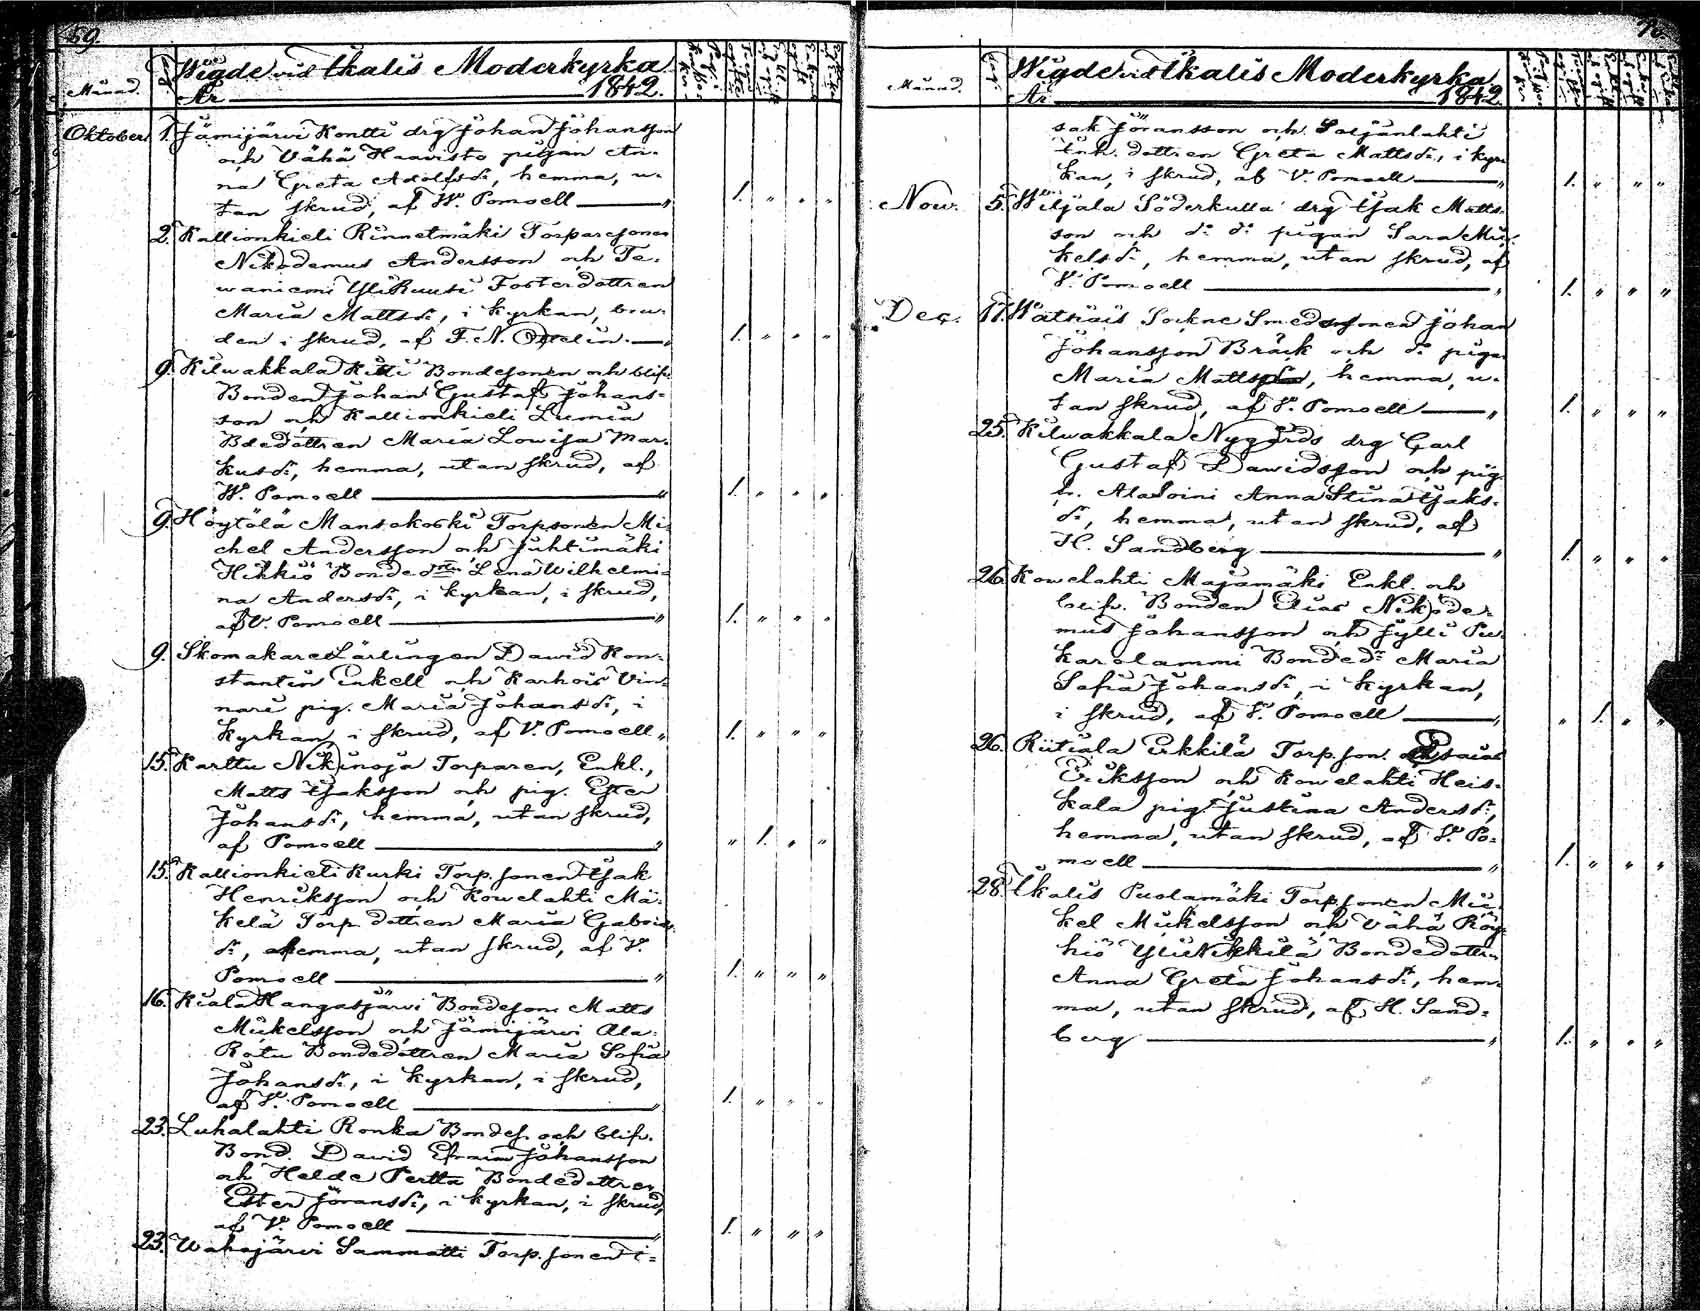 69.
Månad.
Wigde vid Ikalis Moderkyrka
År 1842.
Oktober.
1. Jämijärvi Kontti drg Johan Johansson
och Vähä Haavisto pigan An-
na Greta Adolfsdr, hemma, u-
tan skrud, af W. Pomoell " 1. " " "
2. Kallionkieli Rinnetmäki Torparesonen
Nikodemus Andersson och Te-
vaniemi Yliruusi Fosterdottren
Maria Mattsdr, i kyrkan, bru-
den i skrud, af F. N. 1. " " "
9. Kilwakkala Kitti Bondesonen och blifv.
Bonden Johan Gustaf Johans-
son och Kallionkieli Lumia
Bdedottren Maria Lowisa Mar-
kusdr, hemma, utan skrud, af
W. Pomoell " 1. " " "
9. Höytölä Mansakoski Torpsonen Mi-
chel Andersson och Juhtimäki
Hikkiö Bondedotn Lena Wilhelmi-
na Andersdr, i kyrkan, i skrud,
af V. Pomoell " 1. " " "
9. Skomakare Lärlingen Dawid Kon-
stantin Enkell och Karhois Vin-
nari pig. Maria Johansdr, i
kyrkan, i skrud, af V. Pomoell " 1. " " "
15. Karttu Nikinoja Torparen, Enkl.,
Matts Isaksson och pig. Ester
Johansdr, hemma, utan skrud,
af Pomoell " " 1. " "
15. Kallionkieli Kurki Torp.sonen Isak
Henriksson och Kowelahti Mä-
kelä Torp dottren Maria Gabriels
dr, hemma, utan skrud, af V.
Pomoell " 1. " " "
16. Kiala Kangasjärvi Bondeson. Matts
Mickelsson och Jämijärvi Ala-
Rotu Bondedottren Maria Sofia
Johansdr, i kyrkan, i skrud,
af V. Pomoell " 1. " " "
23. Luhalahti Ronka Bondes. och blifv.
Bond. David Efraim Johansson
och Helde Pertta Bondedottren
Ester Göransdr, i kyrkan, i skrud,
af V. Pomoell " 1. " " "
23. Wahojärvi Sammatti Torp.sonen I-
70.
Månad.
Wigde vid Ikalis Moderkyrka
År 1842
sak Jöransson och Sarjänlahti
Inh. dottren Greta Mattsdr, i kyr-
kan, i skrud, af V. Pomoell " 1. " " "
Nov. 5. Wiljala Söderkulla drg Isak Matts-
son och do do pigan Sara Mic-
kelsdr, hemma, utan skrud, af
V. Pomoell " 1. " " "
Dec. 17. Wätnäis Sockne Smedssonen Johan
Johansson Bräck och do pigan
Maria Matts, hemma, u-
tan skrud, af V. Pomoell " 1. " " "
25. Kilwakkala Nygårds drg Carl
Gustaf Dawidsson och pig.
h. Alasoini Anna Stina Isaks-
dr, hemma, utan skrud, af
H. Sandberg " 1. " " "
26. Kowelahti Majamäki Enkl. och
blifv. Bonden Elias Nikode-
mus Johansson och Jylli Pu-
karolammi Bondedr Maria
Sofia Johansdr, i kyrkan,
i skrud, af V. Pomoell " " 1. " "
26. Riitiala Erkkilä Torp.son.
Eriksson och Kowelahti Heis-
kala pig. Justina Andersdr,
hemma, utan skrud, af V. Po-
moell " 1. " " "
28. Ikalis Puolamäki Torpsonen Mic-
kel Mickelsson och Vähä Röy-
hiö Yli Nikkilä Bondedottren
Anna Greta Johansdr, hem-
ma, utan skrud, af H. Sand-
berg " 1. " " "